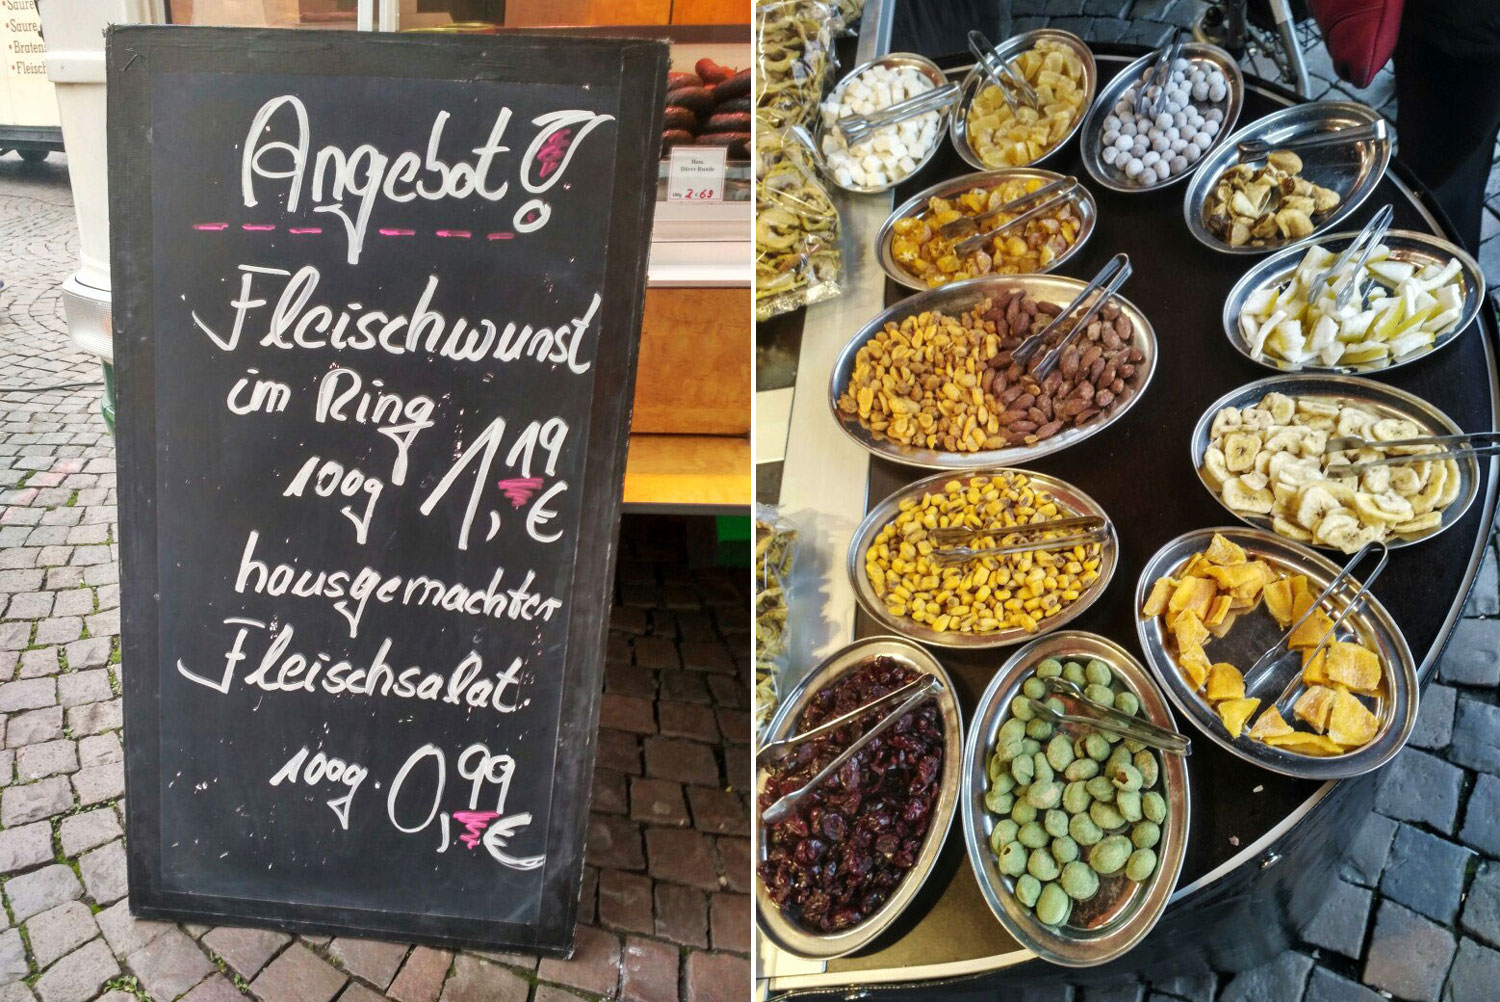 • Saure
• Saure
• Braten
• Fleisch
Angebot!
Fleischwurst
im Ring
100g 1,19 €
hausgemachter
Fleischsalat.
100g. 0,99 €
Hess.
Dürre Runde
100g 2.69